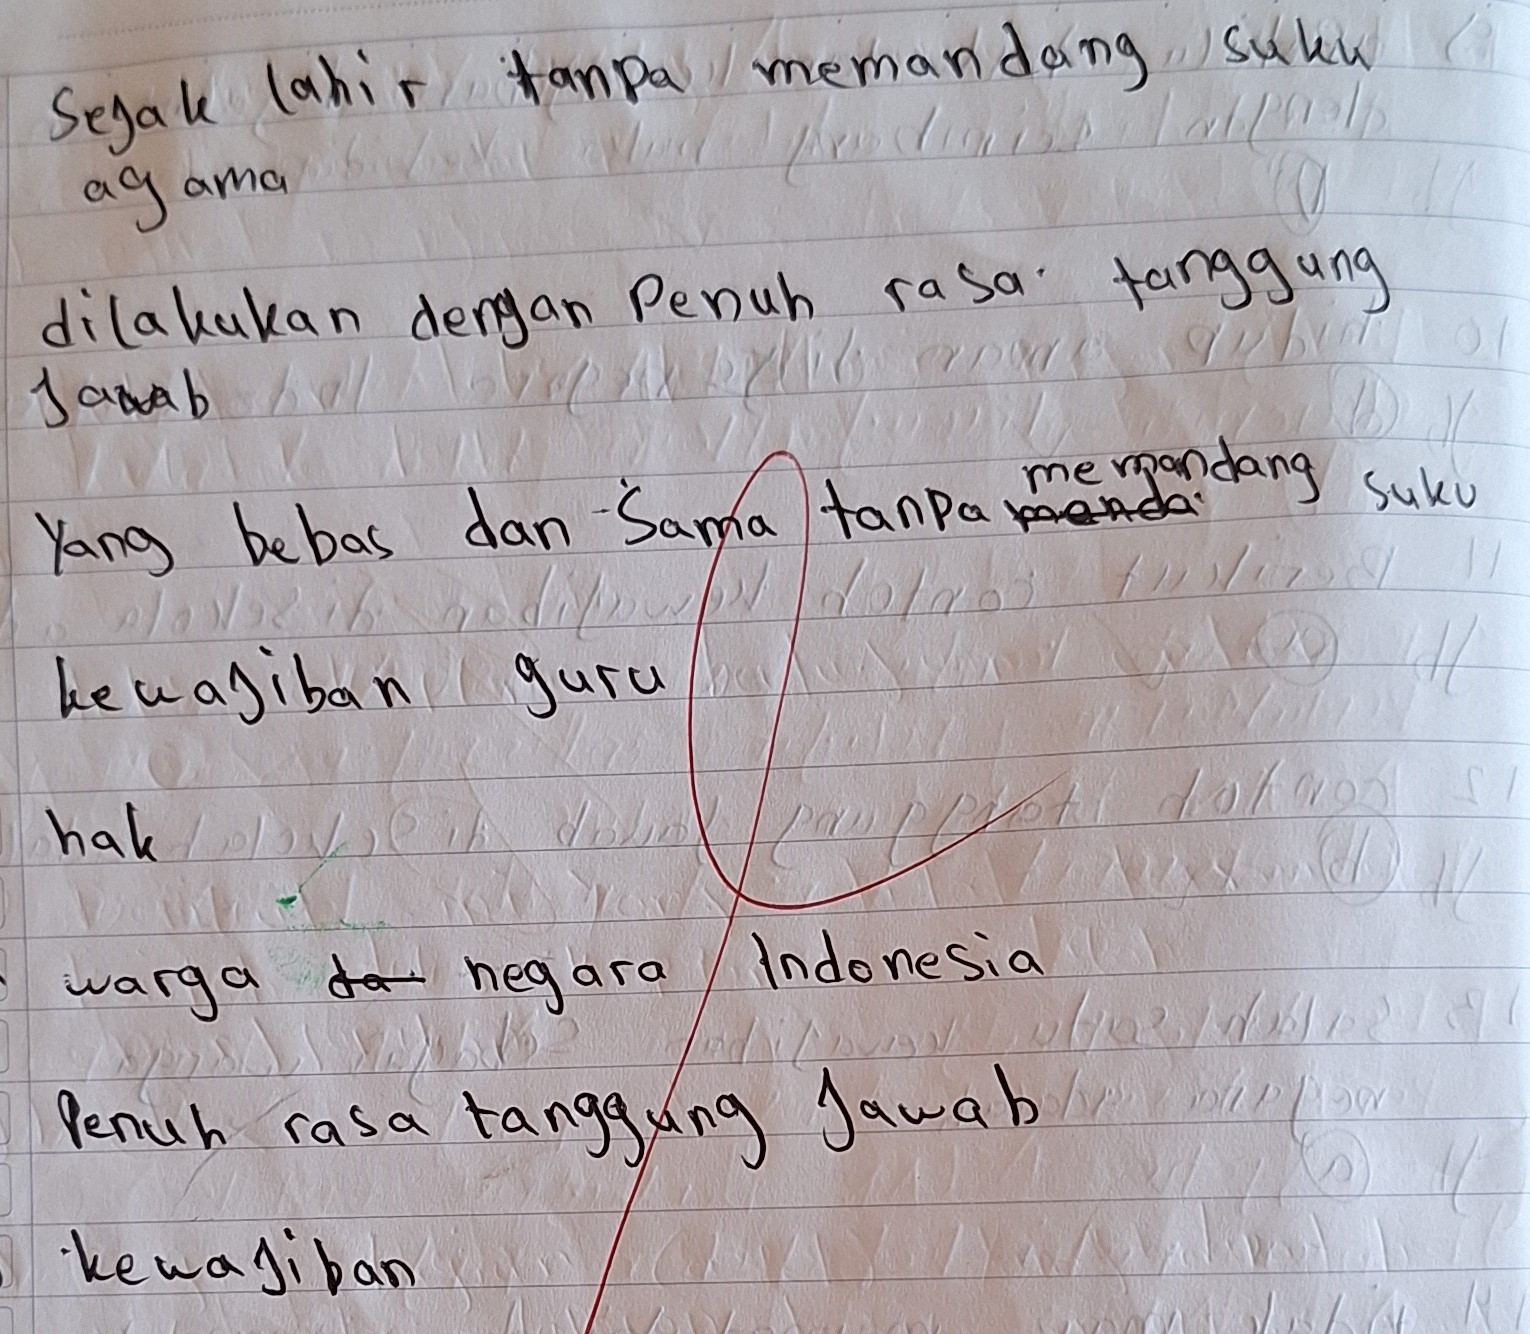 Sejak lahir tanpa memandang suku
agama
dilakukan dengan Penuh rasa tanggung
Jawab
Yang bebas dan sama tanpa memandang suku
kewajiban guru
hak
warga negara Indonesia
Penuh rasa tanggung Jawab
kewajiban